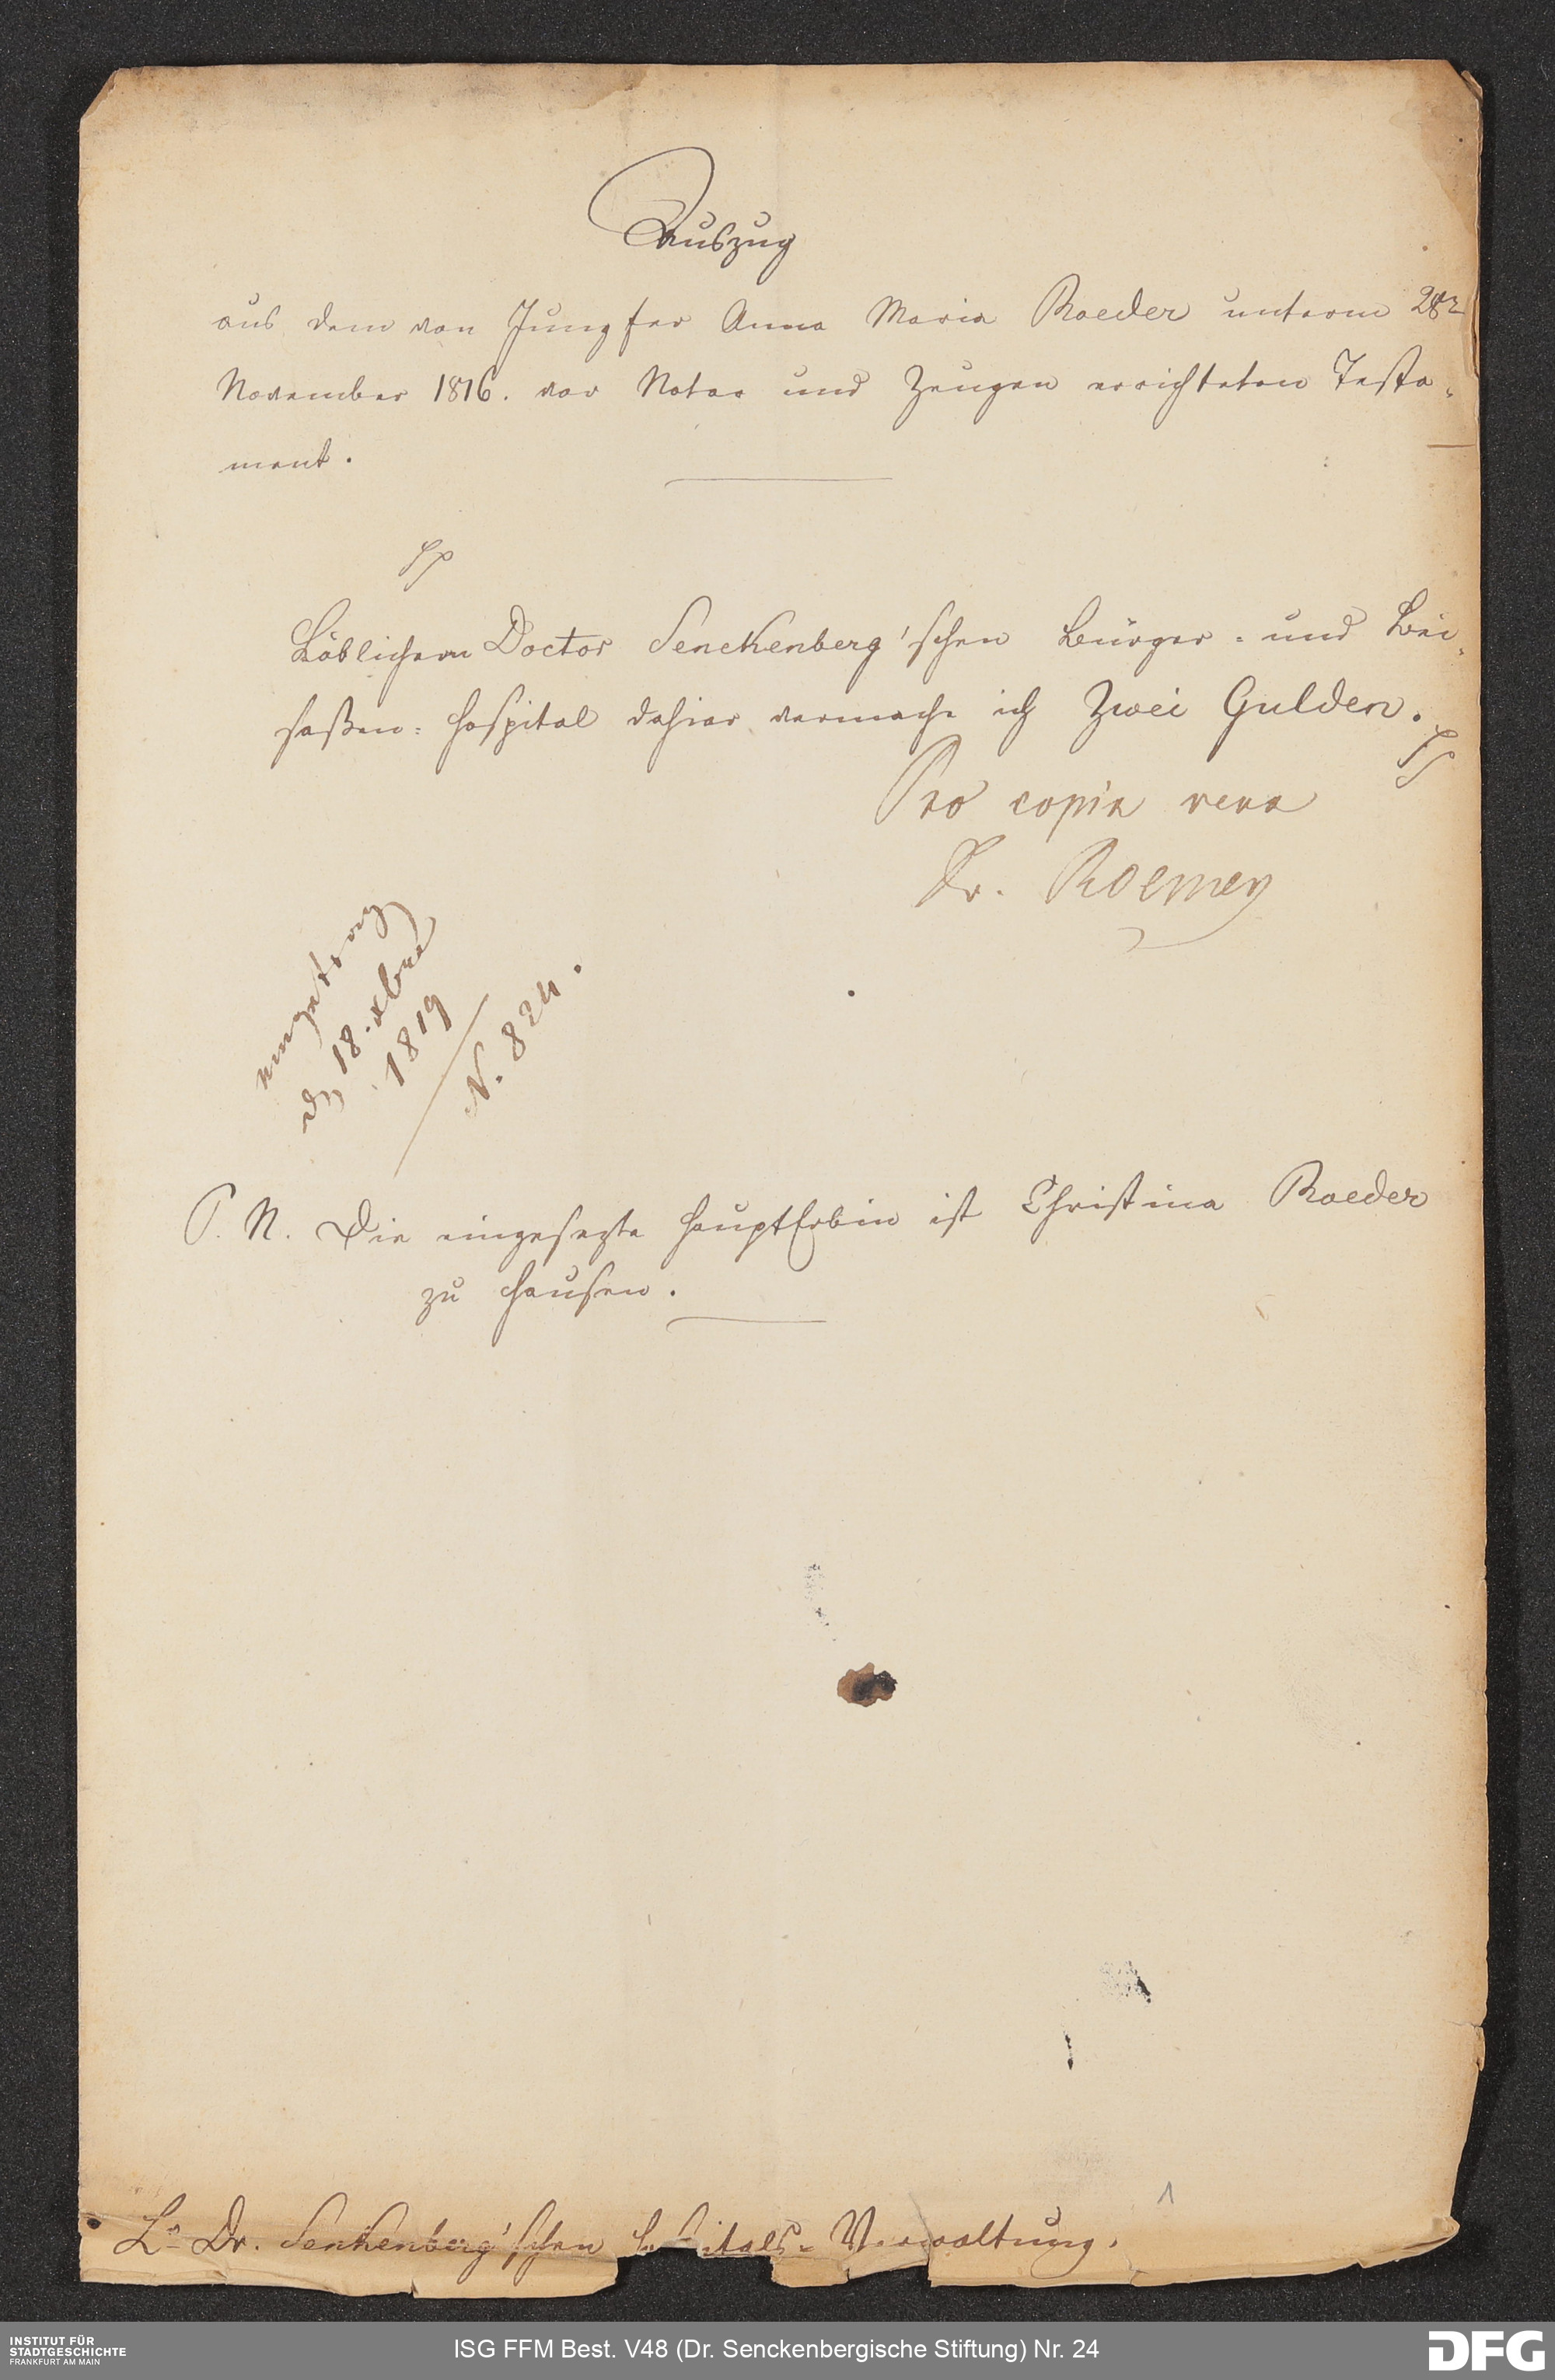 Auszug
aus dem von Jungfer Anna Maria Roeder unterm 28n
November 1816. vor Notar und Zeugen errichteten Testa-
ment.
Löblichem Doctor Senckenberg'schen Bürger- und Bei-
saßen-Hospital dahier vermache ich Zwei Gulden.
Pro copia vera
Dr. Roemer
eingetrag
d. 18. xbre
1819
N. 824.
P. N. Die eingesezte HauptErbin ist Christina Roeder
zu Hausen.
1
Lo Dr. Senkenberg'schen Hospitals-Verwaltung.
INSTITUT FÜR
STADTGESCHICHTE
FRANKFURT AM MAIN
ISG FFM Best. V48 (Dr. Senckenbergische Stiftung) Nr. 24
DFG